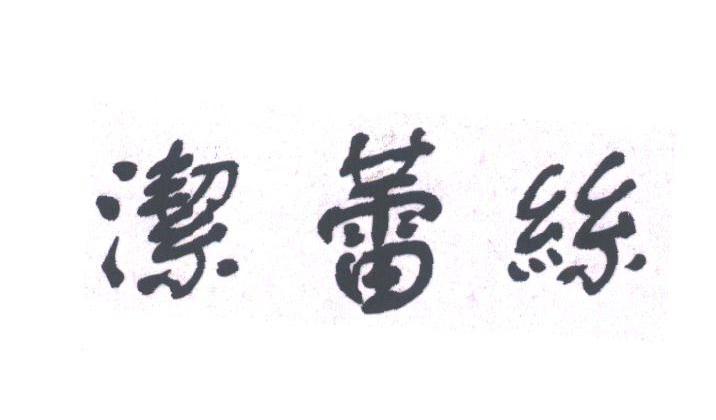 潔蕾絲